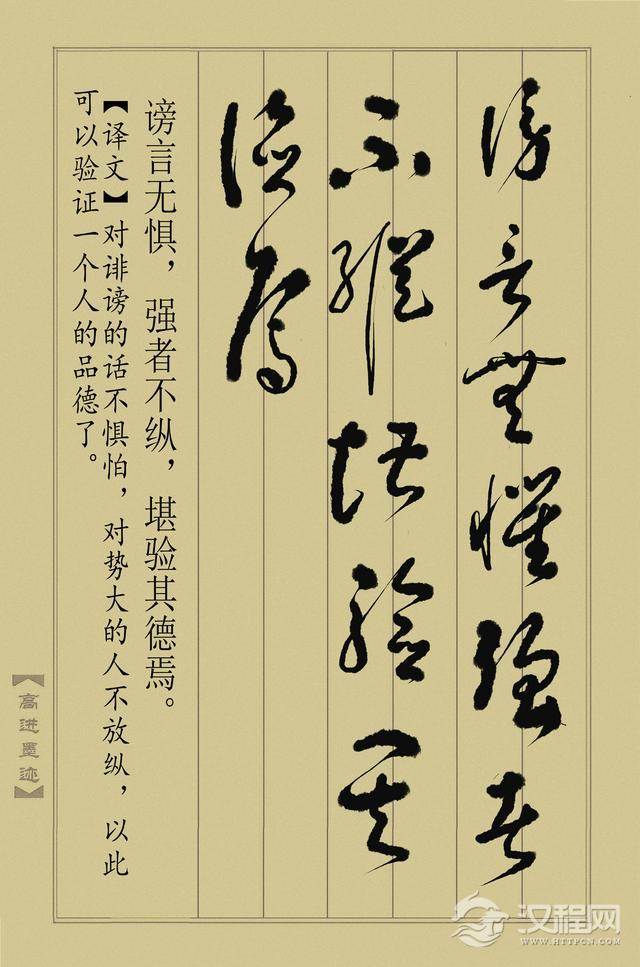 謗言無懼強者
不縱堪驗其
德焉
谤言无惧，强者不纵，堪验其德焉。
【译文】对诽谤的话不惧怕，对势大的人不放纵，以此
可以验证一个人的品德了。
【高进墨迹】
汉程网
WWW.HTTPCN.COM